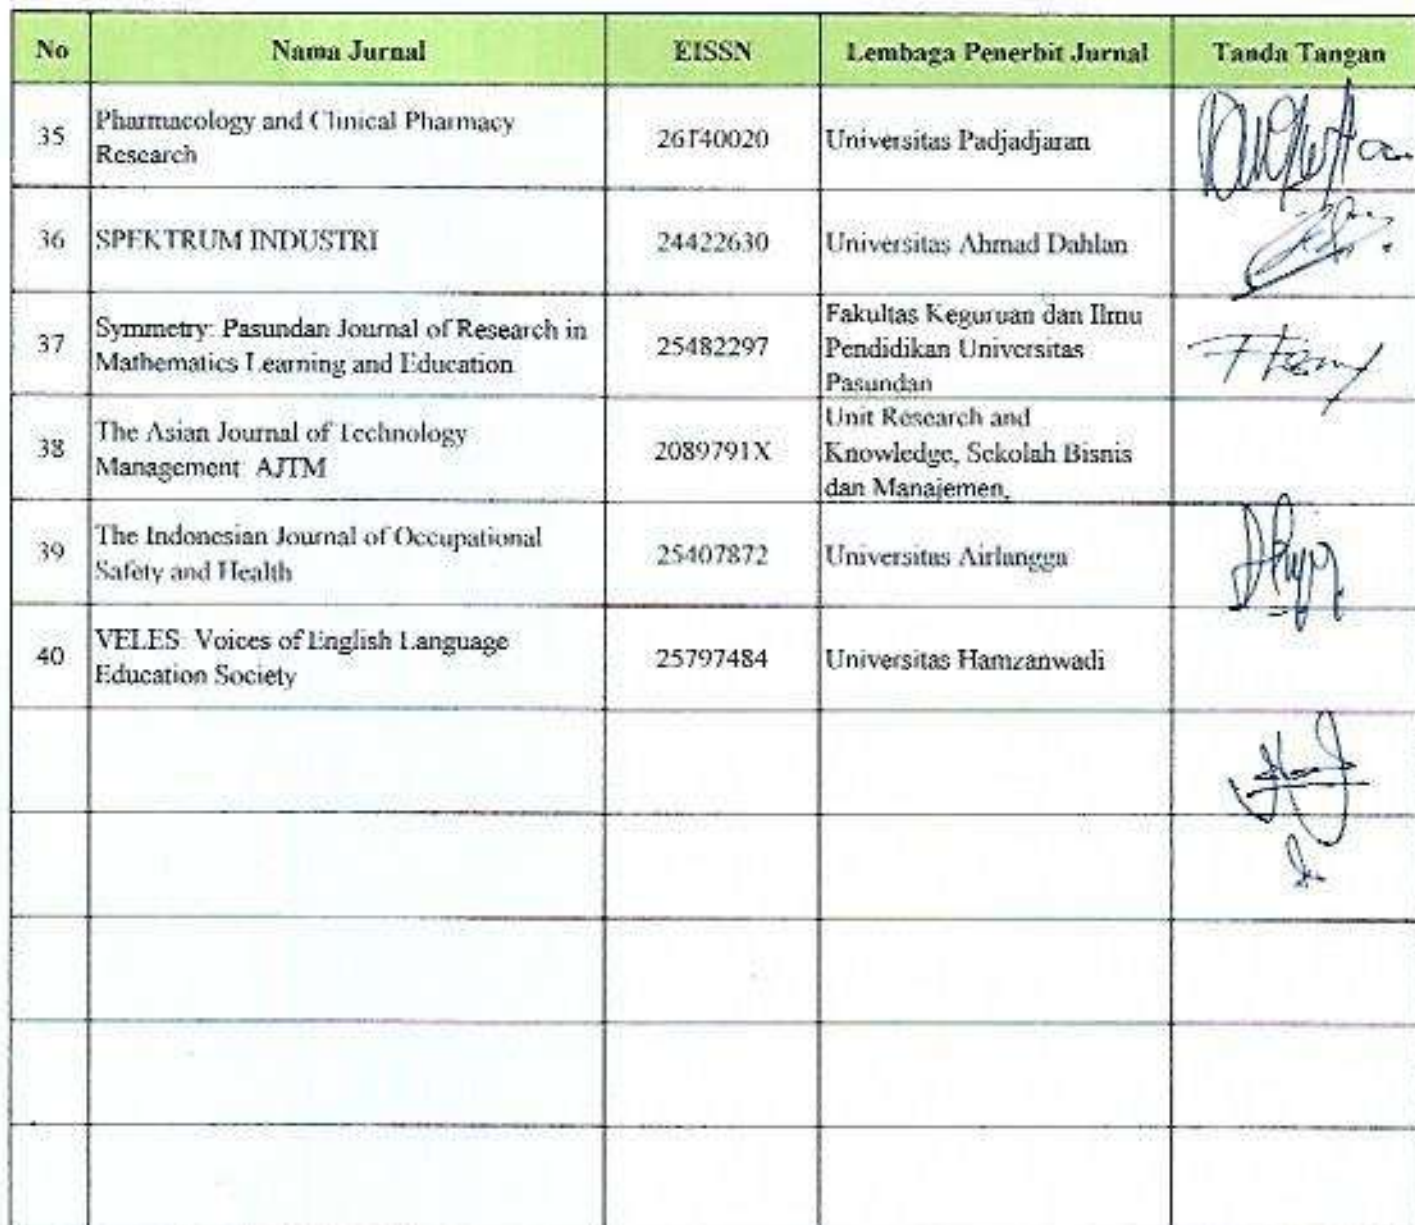 No Nama Jurnal EISSN Lembaga Penerbit Jurnal Tanda Tangan
35 Pharmacology and Clinical Pharmacy
Research 26140020 Universitas Padjadjaran
36 SPEKTRUM INDUSTRI 24422630 Universitas Ahmad Dahlan
37 Symmetry: Pasundan Journal of Research in
Mathematics Learning and Education 25482297 Fakultas Keguruan dan Ilmu
Pendidikan Universitas
Pasundan
38 The Asian Journal of Technology
Management AJTM 2089791X Unit Research and
Knowledge, Sekolah Bisnis
dan Manajemen,
39 The Indonesian Journal of Occupational
Safety and Health 25407872 Universitas Airlangga
40 VELES: Voices of English Language
Education Society 25797484 Universitas Hamzanwadi